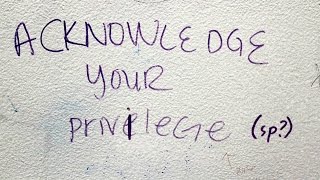 ACKNOWLEDGE
YOUR
privilEGE (sp?)